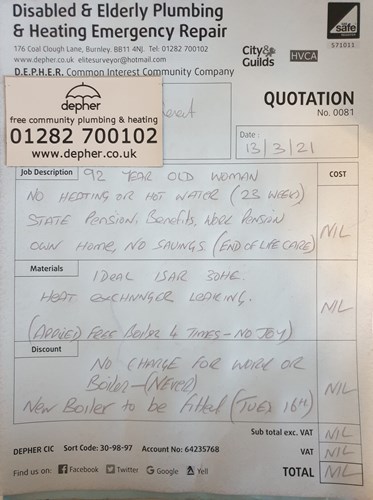 Disabled & Elderly Plumbing
& Heating Emergency Repair
176 Coal Clough Lane, Burnley. BB11 4NJ. Tel: 01282 700102
www.depher.co.uk elitesurveyor@hotmail.com
D.E.P.H.E.R. Common Interest Community Company
City&
Guilds
HVCA
safe
571011
depher
free community plumbing & heating
01282 700102
www.depher.co.uk
QUOTATION
No. 0081
Date :
13/3/21
Job Description
COST
92 YEAR OLD WOMAN
NO HEATING OR HOT WATER (23 WEEKS)
STATE PENSION, Benefits, WORK PENSION
OWN HOME, NO SAVINGS (END OF LIFE CARE)
NIL
Materials
IDEAL ISAR 30HE.
HEAT EXCHNNGER LEAKING.
(APPLIED FREE BOILER 4 TIMES - NO JOY)
NIL
Discount
NO CHARGE FOR WORK OR
Boiler - (NEVER)
NEW BOILER to be fitted (TUES 16th)
NIL
Sub total exc. VAT NIL
VAT NIL
TOTAL NIL
DEPHER CIC Sort Code: 30-98-97 Account No: 64235768
Find us on: Facebook Twitter Google Yell